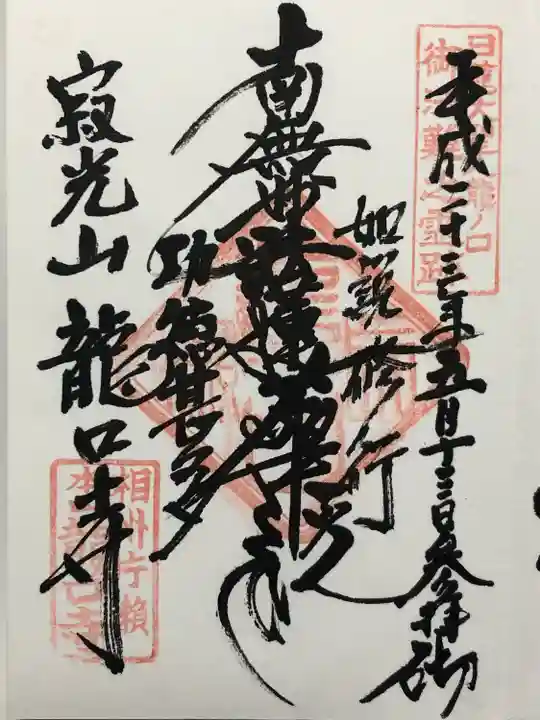 平成二十三年五月十三日参拝砌
如説修行
南無妙法蓮華経
功徳甚多
寂光山 龍口寺
御法難之霊跡
相州片瀬